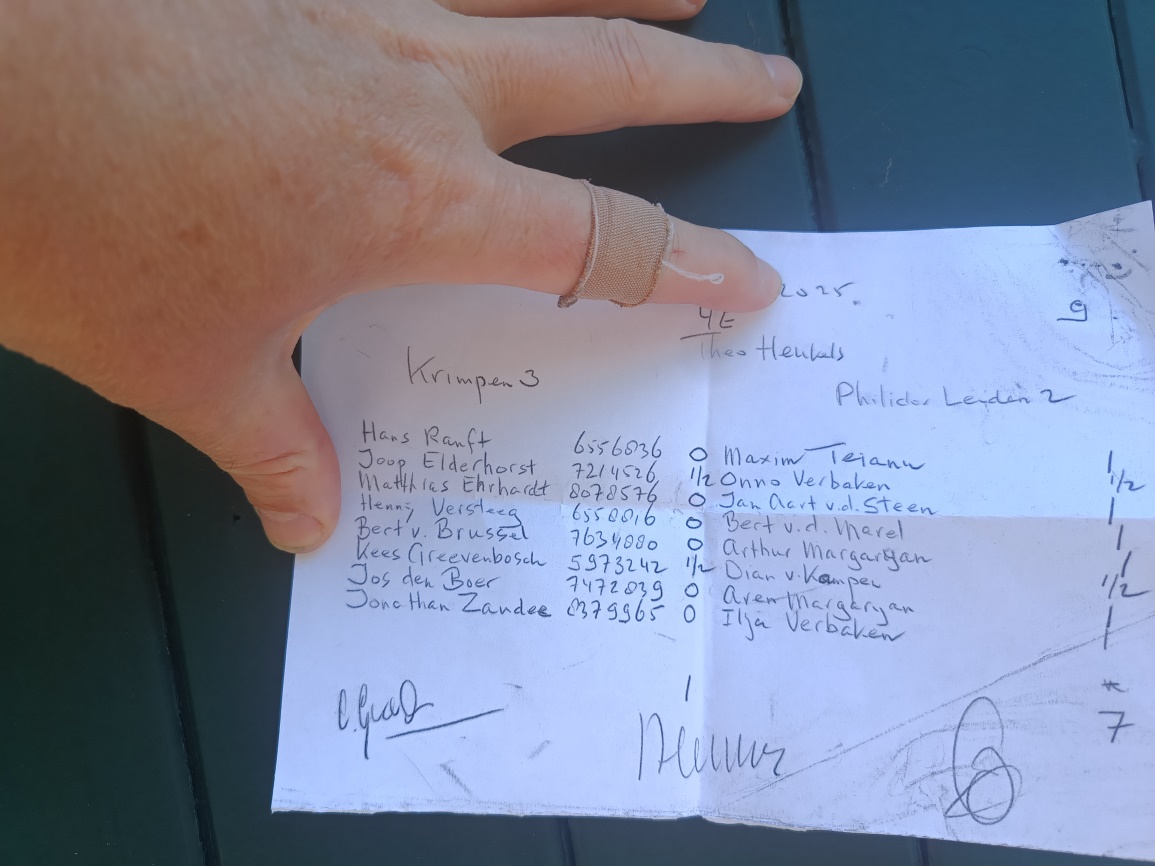 2025.
9
4E
Theo Heukels
Krimpen 3
Philidor Leiden 2
Hans Ranft 6556836 0 Maxim Teianu 1
Joop Elderhorst 7214526 1/2 Onno Verbaken 1/2
Matthias Ehrhardt 8078576 0 Jan Aart v.d. Steen 1
Henny Versteeg 6550016 0 Bert v.d. Marel 1
Bert v. Brussel 7634080 0 Arthur Margaryan 1
Kees Greevenbosch 5973242 1/2 Dian v. Kampen 1/2
Jos den Boer 7472839 0 Aren Margaryan 1
Jonathan Zandee 8379965 0 Ilja Verbaken 1
1
7